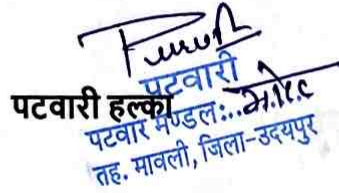 पटवारी
पटवारी हल्का
पटवार मण्डल:...
तह. मावली, जिला-उदयपुर